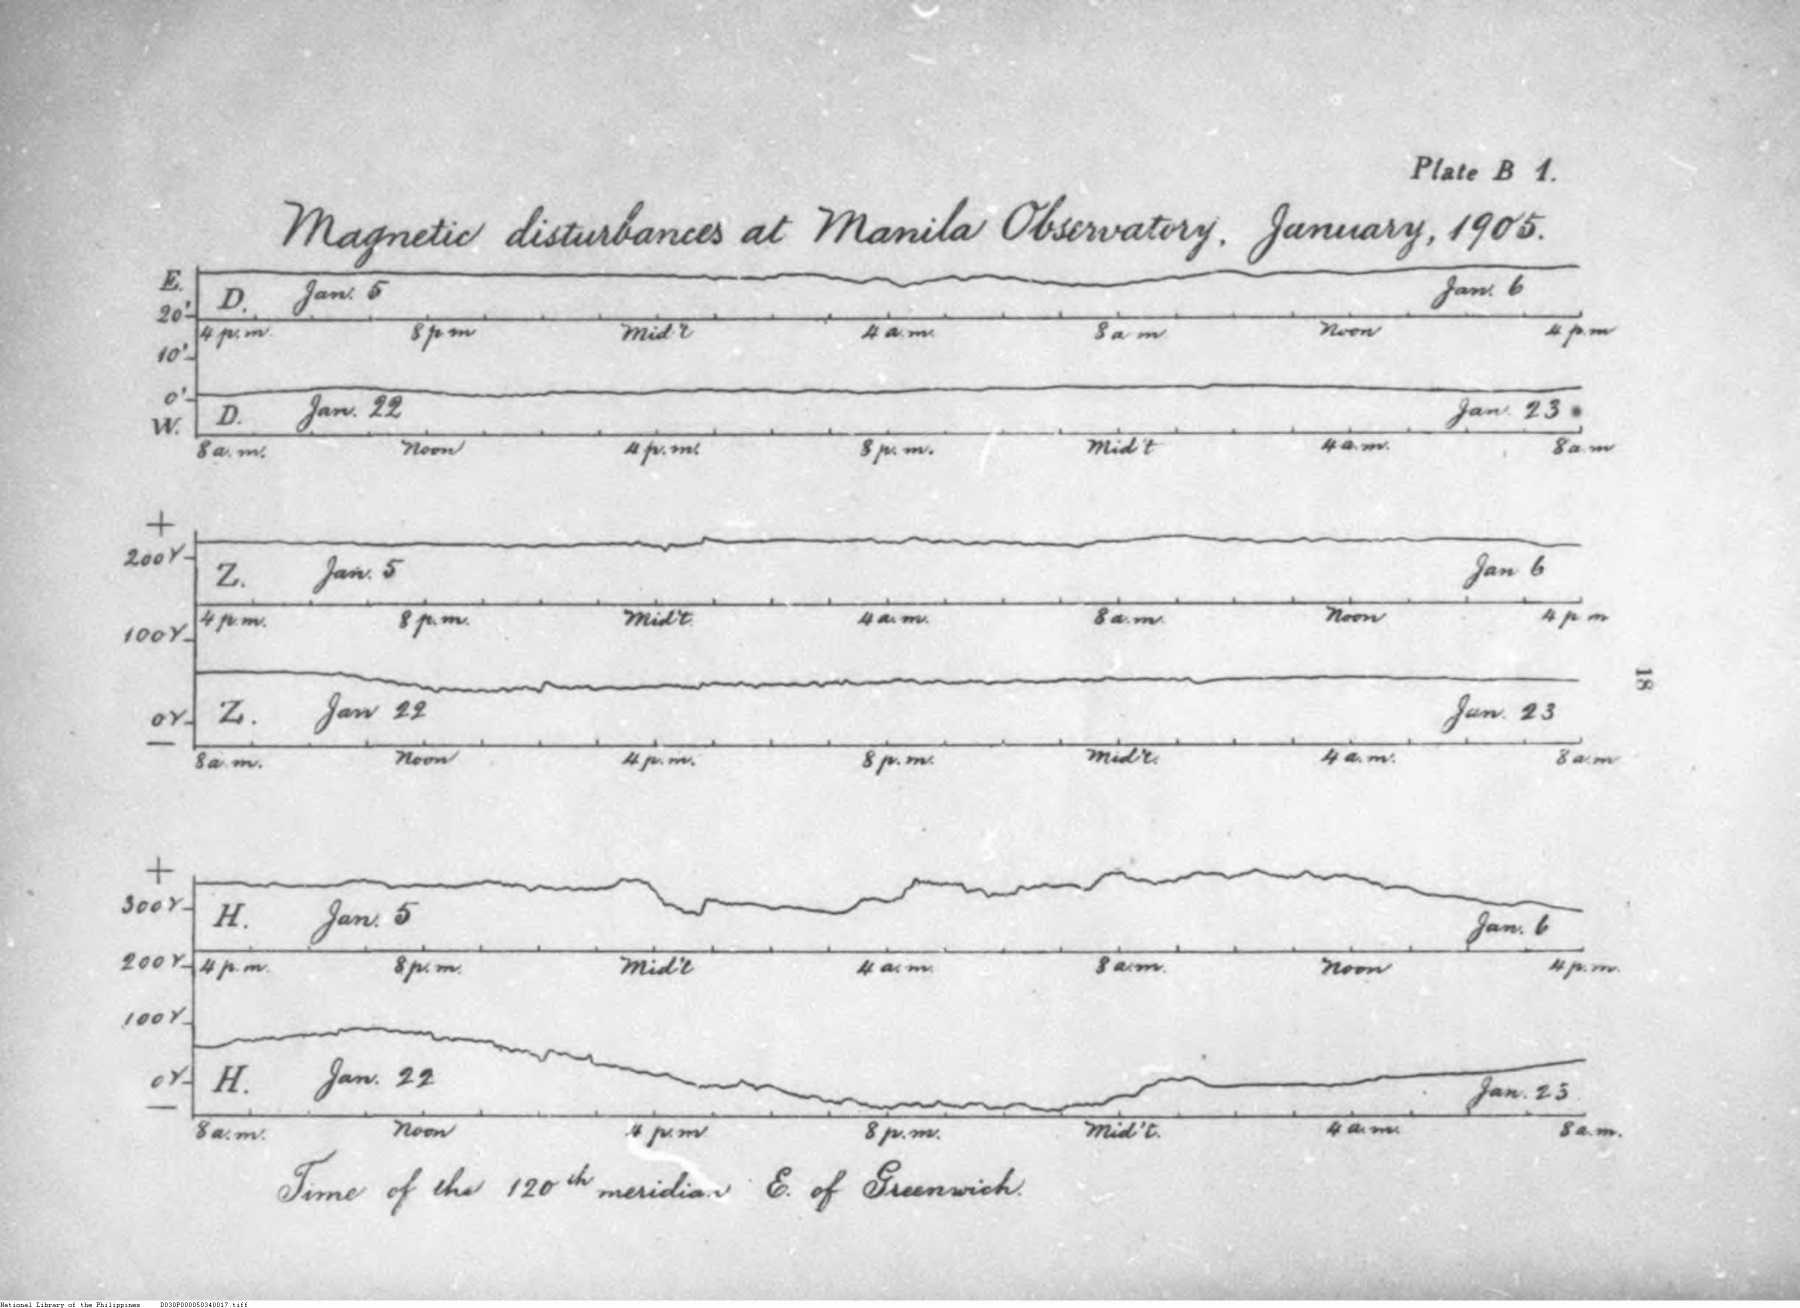 Plate B 1.
Magnetic disturbances at Manila Observatory, January, 1905.
E.
D. Jan. 5 Jan. 6
20'
4 p.m. 8 p m Mid't 4 a.m. 8 a m Noon 4 p.m
10'
0'
D. Jan. 22 Jan. 23
W.
8 a.m. Noon 4 p.m. 8 p.m. Mid't 4 a.m. 8 a.m
+
200 γ
Z. Jan. 5 Jan 6
4 p.m. 8 p.m. Mid't 4 a.m. 8 a.m. Noon 4 p m
100 γ
18
0 γ Z. Jan 22 Jan. 23
—
8 a.m. Noon 4 p.m. 8 p.m. Mid't. 4 a.m. 8 a.m
+
300 γ
H. Jan. 5 Jan. 6
200 γ 4 p.m. 8 p.m. Mid't 4 a.m. 8 a.m. Noon 4 p.m.
100 γ
0 γ H. Jan. 22 Jan. 23
—
8 a.m. Noon 4 p.m 8 p.m. Mid't. 4 a.m. 8 a.m.
Time of the 120th meridian E. of Greenwich.
National Library of the Philippines D030P000050340017.tiff